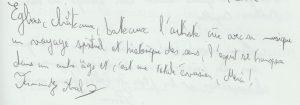 Eglises, châteaux, bateaux l'artiste crée avec sa musique
un voyage spirituel et historique des sens, l'esprit se transpose
dans un autre âge et c'est une totale évasion, Merci !